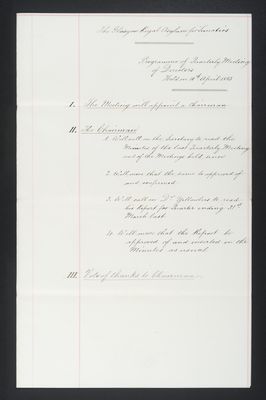 The Glasgow Royal Asylum for Lunatics
Programme of Quarterly Meeting
of Directors
Held on 12th April 1883
I. The Meeting will appoint a Chairman
II. The Chairman
1. Will call on the Secretary to read the
Minutes of the last Quarterly Meeting
and of the Meetings held since
2. Will move that the same be approved of
and confirmed
3. Will call on Dr Yellowlees to read
his Report for Quarter ending 31st
March last
4. Will move that the Report be
approved of and inserted in the
Minutes as usual
III. Vote of thanks to Chairman